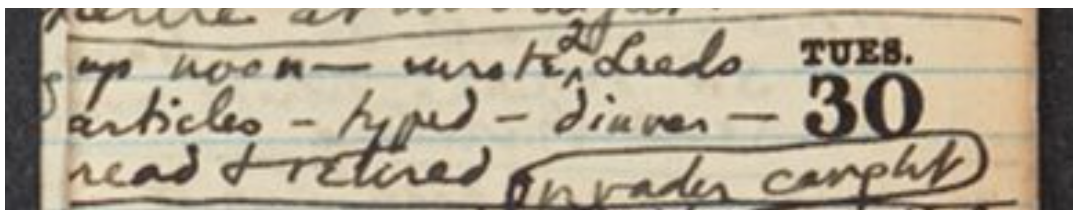 up noon — wrote 2 Leeds
TUES.
30
articles — typed — dinner —
read & retired invader caught